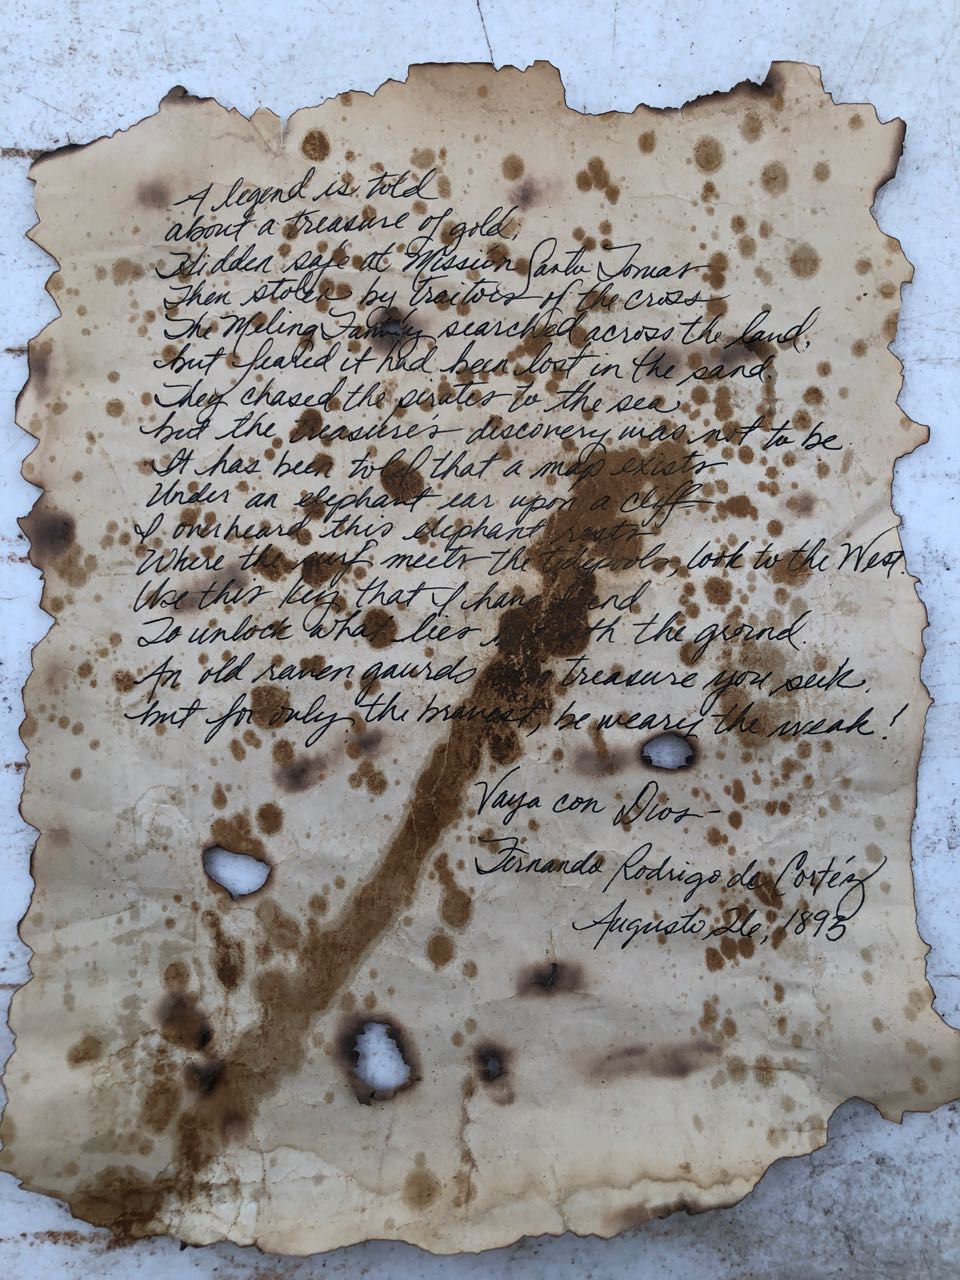 A legend is told
about a treasure of gold,
Hidden safe at Mission Santo Tomas
Then stolen by traitors of the cross.
The Meling Family searched across the land,
but feared it had been lost in the sand.
They chased the pirates to the sea
but the treasure's discovery was not to be.
It has been told that a map exists
Under an elephant ear upon a cliff
I overheard this elephant rests
Where the surf meets the tidepools, look to the West.
Use this key that I have found
To unlock what lies beneath the ground.
An old raven gaurds treasure you seek,
but for only the bravest, be weary the weak!
Vaya con Dios -
Fernando Rodrigo de Cortéz
Augusto 26, 1893